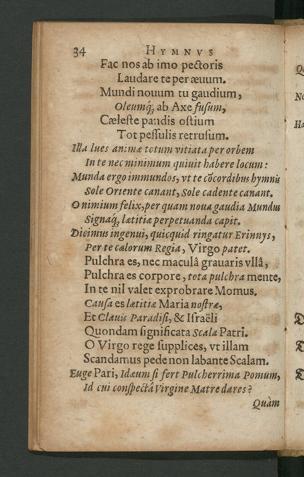 34 HYMNVS
Fac nos ab imo pectoris
Laudare te per æuum.
Mundi nouum tu gaudium,
Oleumq́; ab Axe fusum,
Cæleste pandis ostium
Tot pessulis retrusum.
Illa lues animæ totum vitiata per orbem
In te nec minimum quiuit habere locum:
Munda ergo immundos, vt te cōcordibus hymnis
Sole Oriente canant, Sole cadente canant.
O nimium felix, per quam noua gaudia Mundus
Signaq́, lætitiæ perpetuanda capit.
Dicimus ingenui, quicquid ringatur Erinnys,
Per te cælorum Regia, Virgo patet.
Pulchra es, nec maculâ grauaris vllâ,
Pulchra es corpore, tota pulchra mente,
In te nil valet exprobrare Momus.
Causa es lætitiæ Maria nostræ,
Et Clauis Paradisi, & Israëli
Quondam significata Scala Patri.
O Virgo rege supplices, vt illam
Scandamus pede non labante Scalam.
Euge Pari, Idæum si fert Pulcherrima Pomum,
Id cui conspectâ Virgine Matre dares?
Quàm